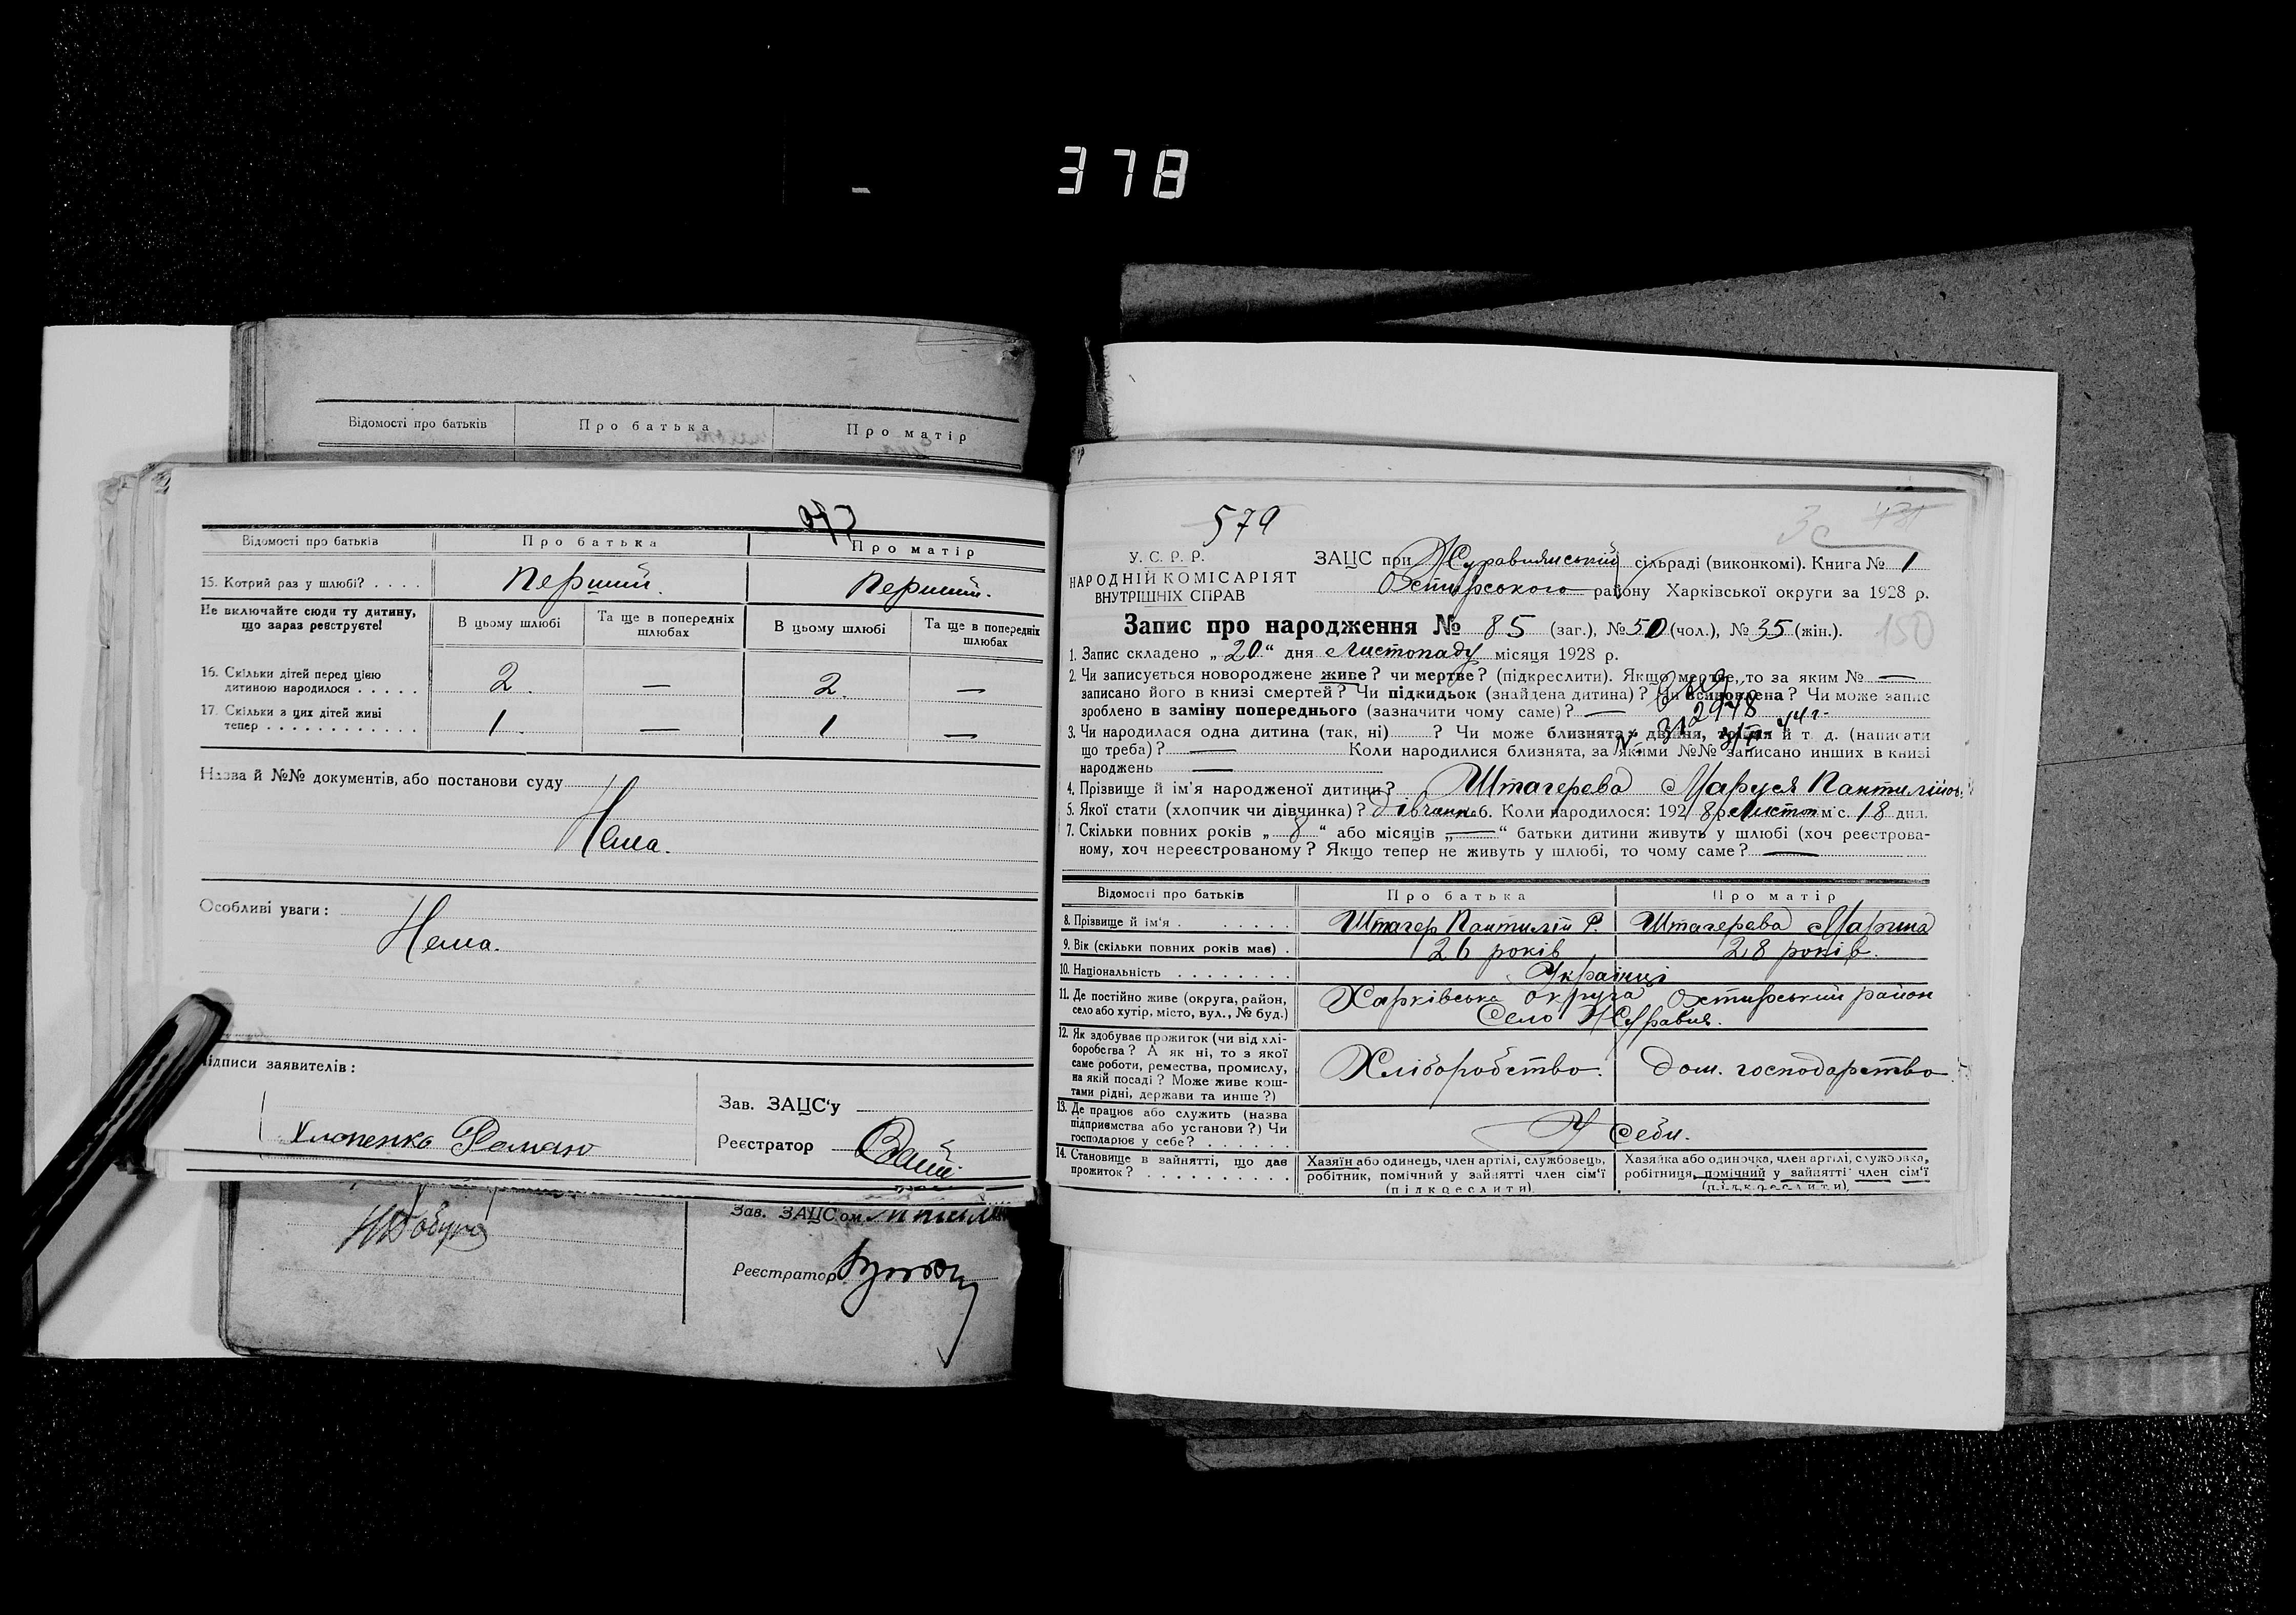 378
Відомості про батьків Про батька Про матір
Відомості про батьків Про батька Про матір
15. Котрий раз у шлюбі? . . . . Перший. Перший.
Не включайте сюди ту дитину, що зараз реєструєте!
В цьому шлюбі Та ще в попередніх шлюбах В цьому шлюбі Та ще в попередніх шлюбах
16. Скільки дітей перед цією
дитиною народилося . . . . . 2. — 2. —
17. Скільки з цих дітей живі
тепер . . . . . . . . . . . . 1 — 1 —
Назва й №№ документів, або постанови суду
Нема.
Особливі уваги:
Нема.
Підписи заявителів:
Зав. ЗАЦС'у
Реєстратор
Роман
Зав. ЗАЦСом
Реєстратор
579
У. С. Р. Р.
НАРОДНІЙ КОМІСАРІЯТ
ВНУТРІШНІХ СПРАВ
ЗАЦС при Журавлянській сільраді (виконкомі). Книга № 1
Охтирського району Харківської округи за 1928 р.
150
Запис про народження № 85 (заг.), № 50 (чол.), № 35 (жін.).
1. Запис складено „ 20 “ дня Листопаду місяця 1928 р.
2. Чи записується новороджене живе? чи мертве? (підкреслити). Якщо мертве, то за яким № —
записано його в книзі смертей? Чи підкидьок (знайдена дитина)? Чи всиновлена? Чи може запис
зроблено в заміну попереднього (зазначити чому саме)? —
3. Чи народилася одна дитина (так, ні) ? Чи може близнята: двійня, трійня й т. д. (написати
що треба)? — Коли народилися близнята, за якими №№ записано инших в книзі
народжень —
4. Прізвище й ім'я народженої дитини? Штагерева Маруся Пантилійов.
5. Якої стати (хлопчик чи дівчинка)? дівчинка 6. Коли народилося: 1928 р. Листоп м'с. 18 дня.
7. Скільки повних років „ 8 “ або місяців „ — “ батьки дитини живуть у шлюбі (хоч реєстрова-
ному, хоч нереєстрованому? Якщо тепер не живуть у шлюбі, то чому саме? —
Відомості про батьків Про батька Про матір
8. Прізвище й ім'я . . . . . . Штагер Пантилій Р. Штагерева Марина
9. Вік (скільки повних років має) . 26 років 28 років.
10. Національність . . . . . . . . Українці
11. Де постійно живе (округа, район,
село або хутір, місто, вул., № буд.)
Харківська округа Охтирський район
Село Журавне.
12. Як здобуває прожиток (чи від хлі-
боробства? А як ні, то з якої
саме роботи, ремества, промислу,
на якій посаді? Може живе кош-
тами рідні, держави та инше?)
Хліборобство. Дом. господарство.
13. Де працює або служить (назва
підприємства або установи?) Чи
господарює у себе? . . . . . .
У себе.
14. Становище в зайнятті, що дає
прожиток? . . . . . . . . . .
Хазяїн або одинець, член артілі, службовець,
робітник, помічний у зайнятті член сім'ї
(підкреслити)
Хазяйка або одиночка, член артілі, службовка,
робітниця, помічний у зайнятті член сім'ї
(підкреслити).